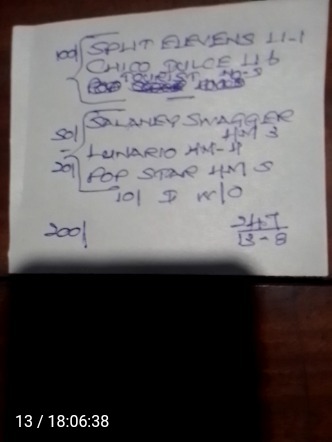 100/ SPLIT ELEVENS 11-1
CHICO DULCE 11 6
TOURIST
50/ SALANEY SWAGGER
4M 3
LUNARIO 4M-4
20/ POP STAR 4M 5
10/ I W/O
200/ 247
13-8
13 / 18:06:38